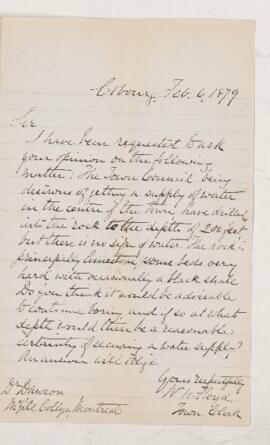 Cobourg, Feb. 6, 1879
Sir
I have been requested to ask
your opinion on the following
matter: The Town Council being
desirous of getting a supply of water
in the centre of the Town, have drilled
into the rock to the depth of 200 feet
but there is no sign of water. The rock is
principally limestone, some beds very
hard with occasionally a black shale
Do you think it would be advisable
to continue boring and if so at what
depth would there be a reasonable
certainty of securing a water supply?
An answer will oblige
Yours respectfully
Dr Dawson
McGill College, Montreal
W. H. Floyd,
Town Clerk